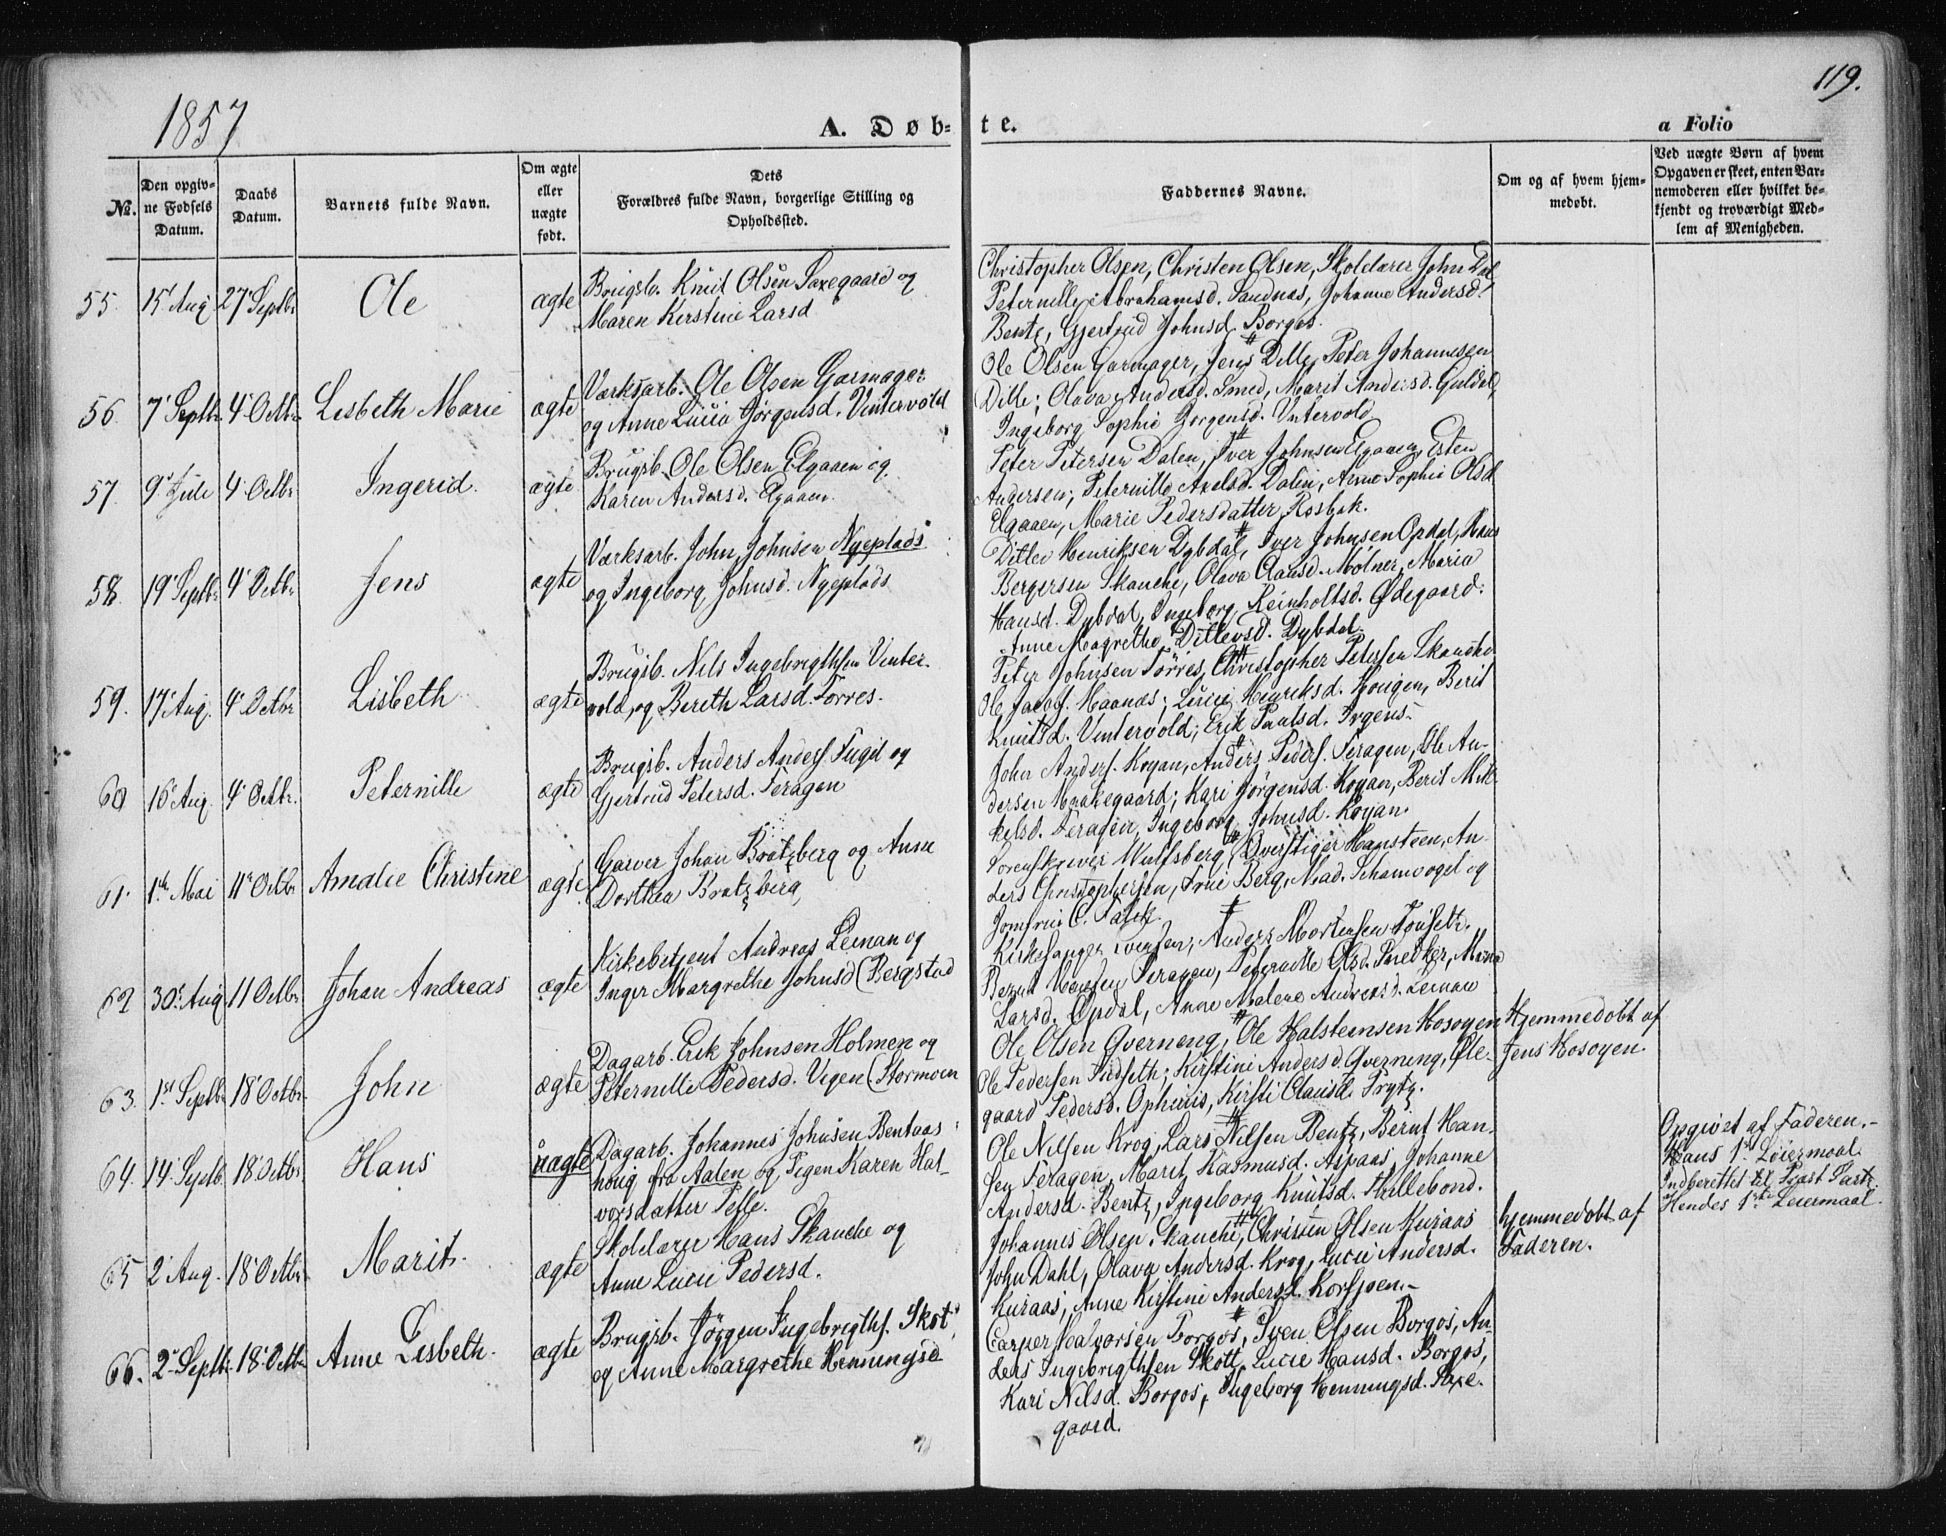 1857
119.
A. Døb-
te.
a Folio
No.
Den opgiv-
ne Fødsels
Datum.
Daabs
Datum.
Barnets fulde Navn.
Om ægte
eller
uægte
født.
Dets
Forældres fulde Navn, borgerlige Stilling og
Opholdssted.
Faddernes Navne.
Om og af hvem hjem-
medøbt.
Ved uægte Børn af hvem
Opgaven er skeet, enten Bar-
nemoderen eller hvilket be-
kjendt og troværdigt Med-
lem af Menigheden.
55. 15 Aug. 27 Septbr. Ole ægte
Brugsb. Knut Olsen Saxegaard og
Maren Kirstine Larsd
Christopher Olsen, Christen Olsen, Skolelærer John Dal
Peternille Abrahamsd. Sandnæs, Johanne Andersd.
Bentz, Gjertrud Johnsd. Borgos.
56. 7 Septbr. 4 Octbr. Lisbeth Marie ægte
Værksarb. Ole Olsen Garmager
og Anne Lucia Jørgensd. Vintervold
Ole Olsen Garmager, Jens Dille, Peter Johannesen
Dille; Olava Andersd. Smed, Marit Andersd. Guldal,
Ingeborg Sophie Jørgensd. Vintervold
57. 9 Juli 4 Octbr. Ingerid. ægte
Brugsb. Ole Olsen Elgaaen og
Karen Andersd. Elgaaen.
Peter Petersen Dalen, Iver Johnsen Elgaaen, Esten
Andersen; Peternille Axelsd. Dalen, Anne Sophie Olsd.
Elgaaen, Marie Pedersdatter Rosbak.
58. 19 Septbr. 4 Octbr. Jens ægte
Værksarb. John Johnsen Nyeplads
og Ingeborg Johnsd. Nyeplads
Ditlev Henriksen Dybdal, Iver Johnsen Opdal, Hans
Bergersen Skanche, Olava Clausd. Mølner, Maria
Hansd. Dybdal, Ingeborg Reinholtsd. Ødegaard.
Anne Magrethe Ditlevsd. Dybdal.
59. 17 Aug. 4 Octbr Lisbeth ægte
Brugsb. Nils Ingebrigthsen Vinter-
vold, og Bereth Larsd. Torres.
Peter Johnsen Torres, Christopher Petersen Skancke
Ole Jacobs. Haanæs; Lucie Henriksd. Hougen, Berit
Knutsd. Vintervold; Erik Paulsd. Irgens.
60 16 Aug. 4 Octbr. Peternille ægte
Brugsb. Anders Anders. Tugil og
Gjertrud Petersd. Feragen
John Anders. Koyan, Anders Peders. Feragen, Ole An-
dersen Haakegaard; Kari Jørgensd. Koyan, Berit Mik-
kelsd. Feragen, Ingeborg Johnsd. Koyan.
61. 1ste Mai 11te Octbr. Amalie Christine ægte
Garver Johan Bratzberg og Anne
Dorthea Bratzberg
Sorenskriver Wulfsberg, Overstiger Hansteen, An-
ders Christophersen, Frue Berg, Mad. Schamvogel og
Jomfrue C. Falck.
62 30 Aug. 11 Octbr. Johan Andreas ægte
Kirkebetjent Andreas Leman og
Inger Margrethe Johnsd (Bergstad
Kirkesanger Evensen, Anders Mortensen Tonseth.
Bernt Hansen Feragen, Peternille Olsd. Snedker, Maria
Larsd. Opdal, Anne Malene Andreasd. Leman
63. 1st Septbr. 18 Octbr. John ægte
Dagarb. Erik Johnsen Holmen og
Peternille Pedersd. Vegen (Stormoen
Ole Olsen Qverneng, Ole Halsteinsen Hosøyen
Ole Pedersen Sudseth; Kirstine Andersd. Qverneng, Øde-
gaard Pedersd. Ophuus, Kirsti Clausd. Trytz.
Hjemmedøbt af
Jens Hosoyen.
64. 14 Septb. 18 Octbr. Hans uægte
Dagarb. Johannes Johnsen Bentaas
houg fra Aalen og Pigen Karen Hal-
vorsdatter Telle.
Ole Nilsen Krog, Lars Nilsen Bentz, Bernt Han-
sen Feragen, Marit Rasmusd. Aspaas, Johanne
Andersd. Bentz, Ingeborg Knutsd. Stillebond.
Opgivet af Faderen.-
Hans 1st Leiermaal.
Indberettet til Præst Parti
Hendes 1ste Leiermaal.
65 2 Aug. 18 Octbr. Marit. ægte
Skolelærer Hans Skanche og
Anne Lucie Pedersd.
Johannes Olsen Skanche, Christen Olsen Kuraas
John Dahl, Olava Andersd. Krog, Lucie Andersd.
Kuraas, Anne Kirstine Andersd. Korssjoen.-
hjemmedøbt af
Faderen.
66. 2 Septbr. 18 Octbr. Anne Lisbeth. ægte
Brugsb. Jørgen Ingebrigths. Skot
og Anne Margrethe Henningsd
Casper Halvorsen Borgos, Sven Olsen Borgos, An-
ders Ingebrigthsen Skott, Lucie Hansd. Borgos,
Kari Nilsd. Borgos, Ingeborg Henningsd. Saxe-
gaard.